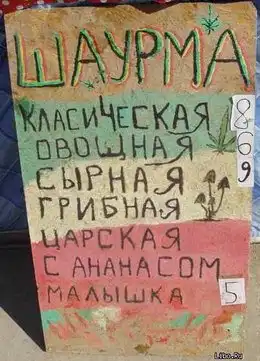 ШАУРМА
КЛАСИЧЕСКАЯ 8
ОВОЩНАЯ 6
СЫРНАЯ 9
ГРИБНАЯ
ЦАРСКАЯ
С АНАНАСОМ
МАЛЫШКА 5
Libo.Ru